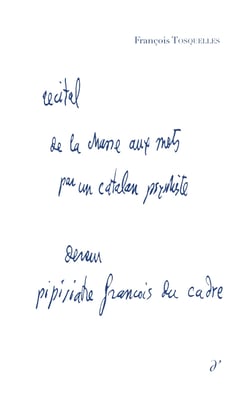 François TOSQUELLES
recital
de la chasse aux mots
par un catalan psychiste
devenu
pipiriatre francois du cadre